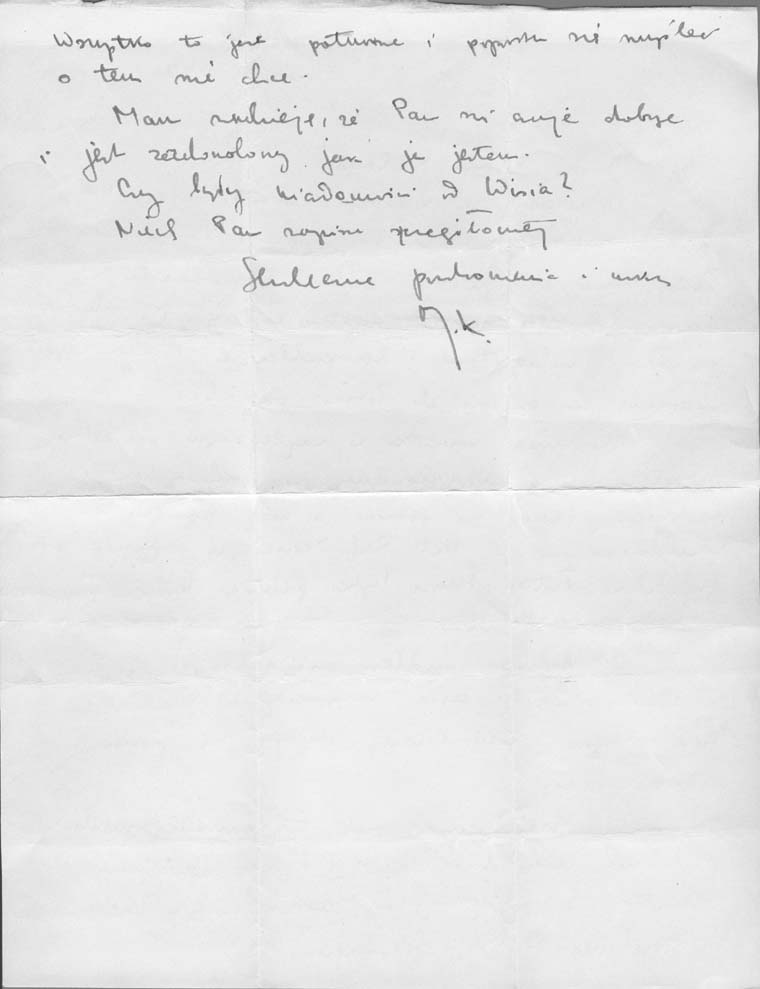 Wszystko to jest potworne i poprostu się myśleć
o tem nie chce.
Mam nadzieję, że Pan się czuje dobrze
i jest zadowolony jak ja jestem.
Czy były wiadomości od Wisia?
Niech Pan napisze szczegółowiej
Serdeczne pozdrowienia i
J.K.